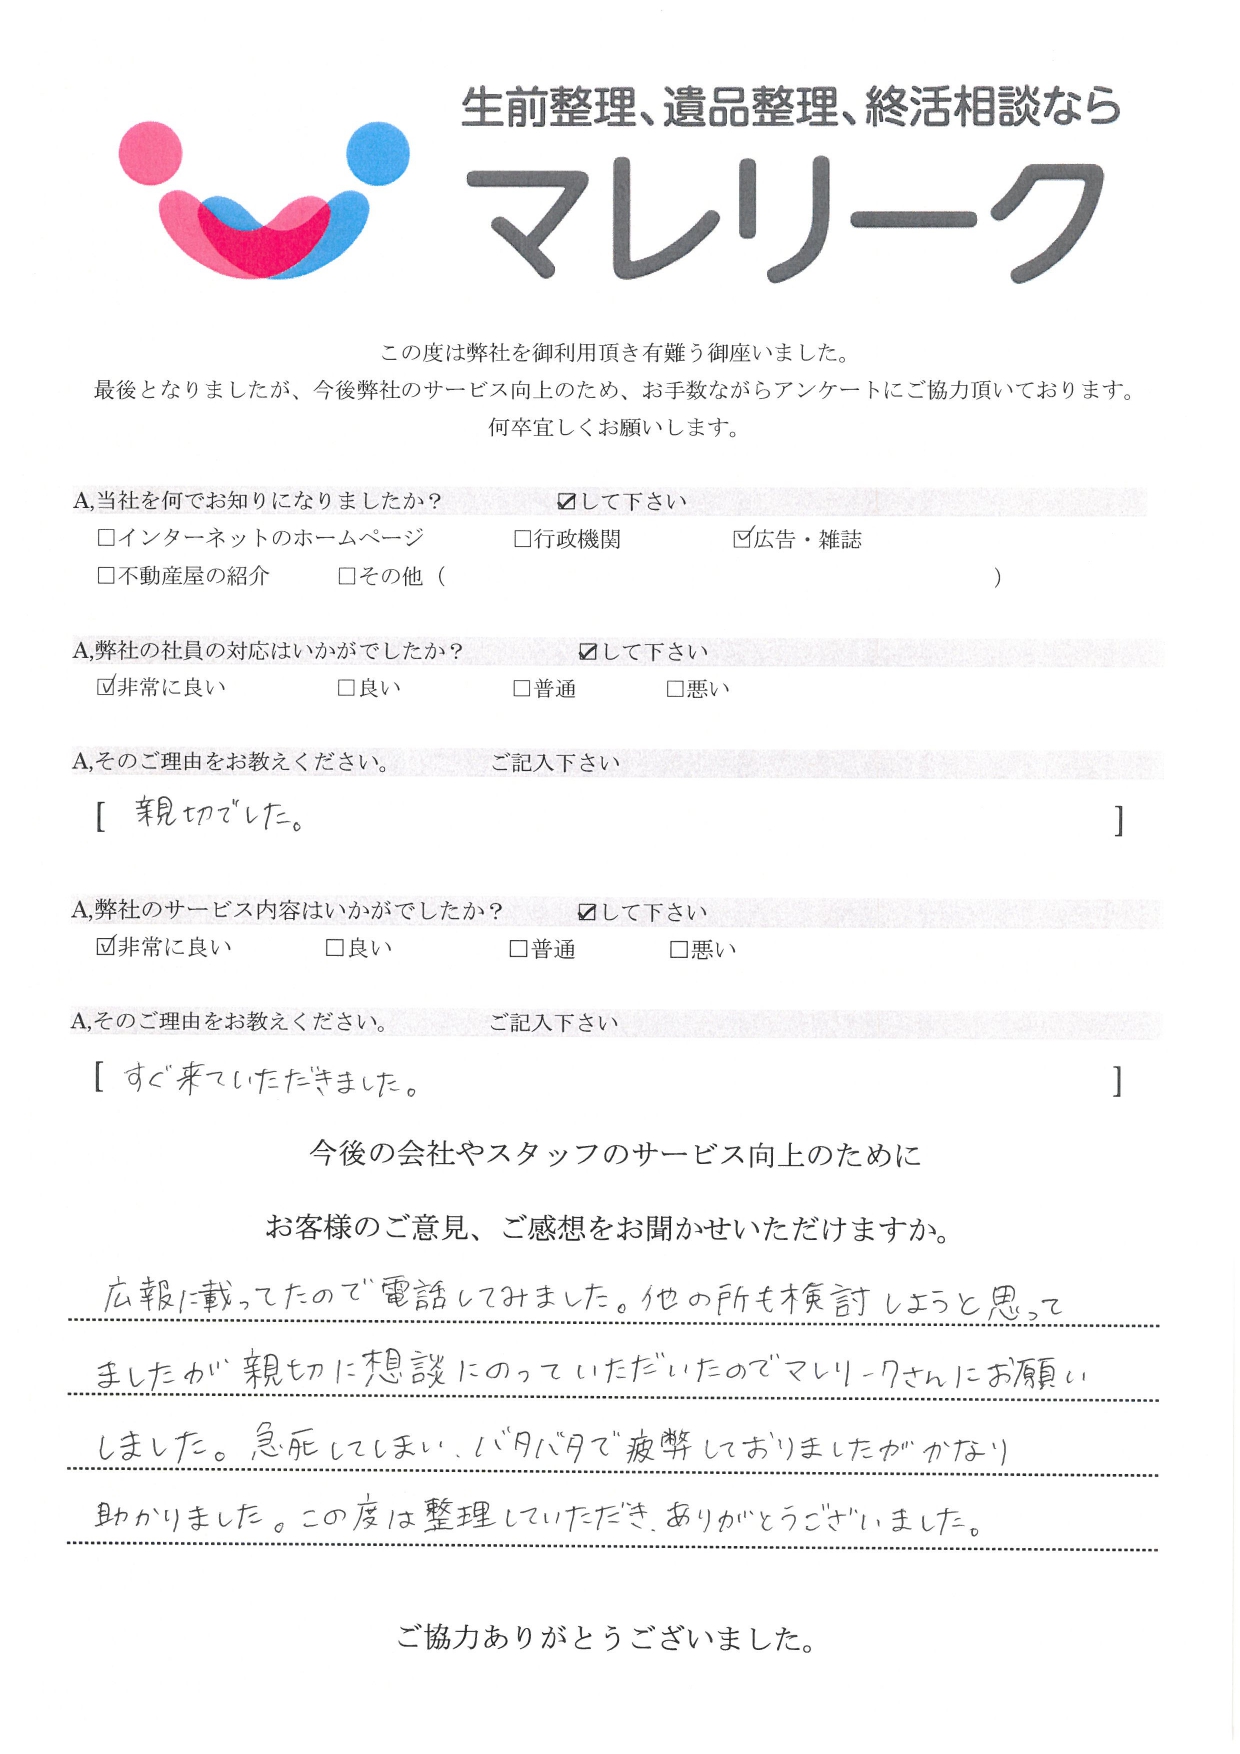 生前整理、遺品整理、終活相談なら
マレリーク
この度は弊社を御利用頂き有難う御座いました。
最後となりましたが、今後弊社のサービス向上のため、お手数ながらアンケートにご協力頂いております。
何卒宜しくお願いします。
A,当社を何でお知りになりましたか？ ☑して下さい
□インターネットのホームページ □行政機関 ☑広告・雑誌
□不動産屋の紹介 □その他（ ）
A,弊社の社員の対応はいかがでしたか？ ☑して下さい
☑非常に良い □良い □普通 □悪い
A,そのご理由をお教えください。 ご記入下さい
[ 親切でした。 ]
A,弊社のサービス内容はいかがでしたか？ ☑して下さい
☑非常に良い □良い □普通 □悪い
A,そのご理由をお教えください。 ご記入下さい
[ すぐ来ていただきました。 ]
今後の会社やスタッフのサービス向上のために
お客様のご意見、ご感想をお聞かせいただけますか。
広報に載ってたので電話してみました。他の所も検討しようと思って
ましたが親切に想談にのっていただいたのでマレリークさんにお願い
しました。急死してしまい、バタバタで疲弊しておりましたがかなり
助かりました。この度は整理していただき、ありがとうございました。
ご協力ありがとうございました。